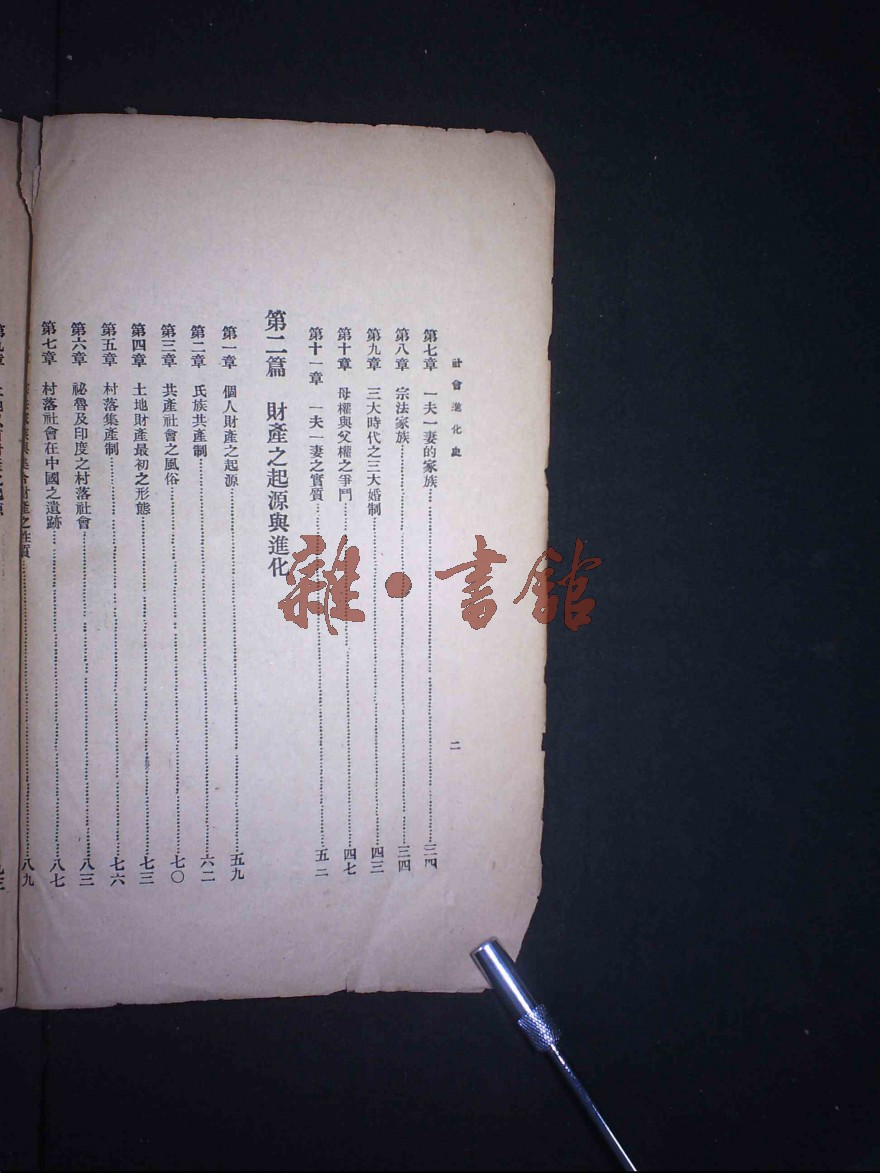 社會進化史
二
第七章 一夫一妻的家族……三四
第八章 宗法家族……三四
第九章 三大時代之三大婚制……四三
第十章 母權與父權之爭鬥……四七
第十一章 一夫一妻之實質……五二
第二篇 財產之起源與進化
第一章 個人財產之起源……五九
第二章 氏族共產制……六二
第三章 共產社會之風俗……七〇
第四章 土地財產最初之形態……七三
第五章 村落集產制……七六
第六章 祕魯及印度之村落社會……八三
第七章 村落社會在中國之遺跡……八七
財產之性質……八九
雜·書館